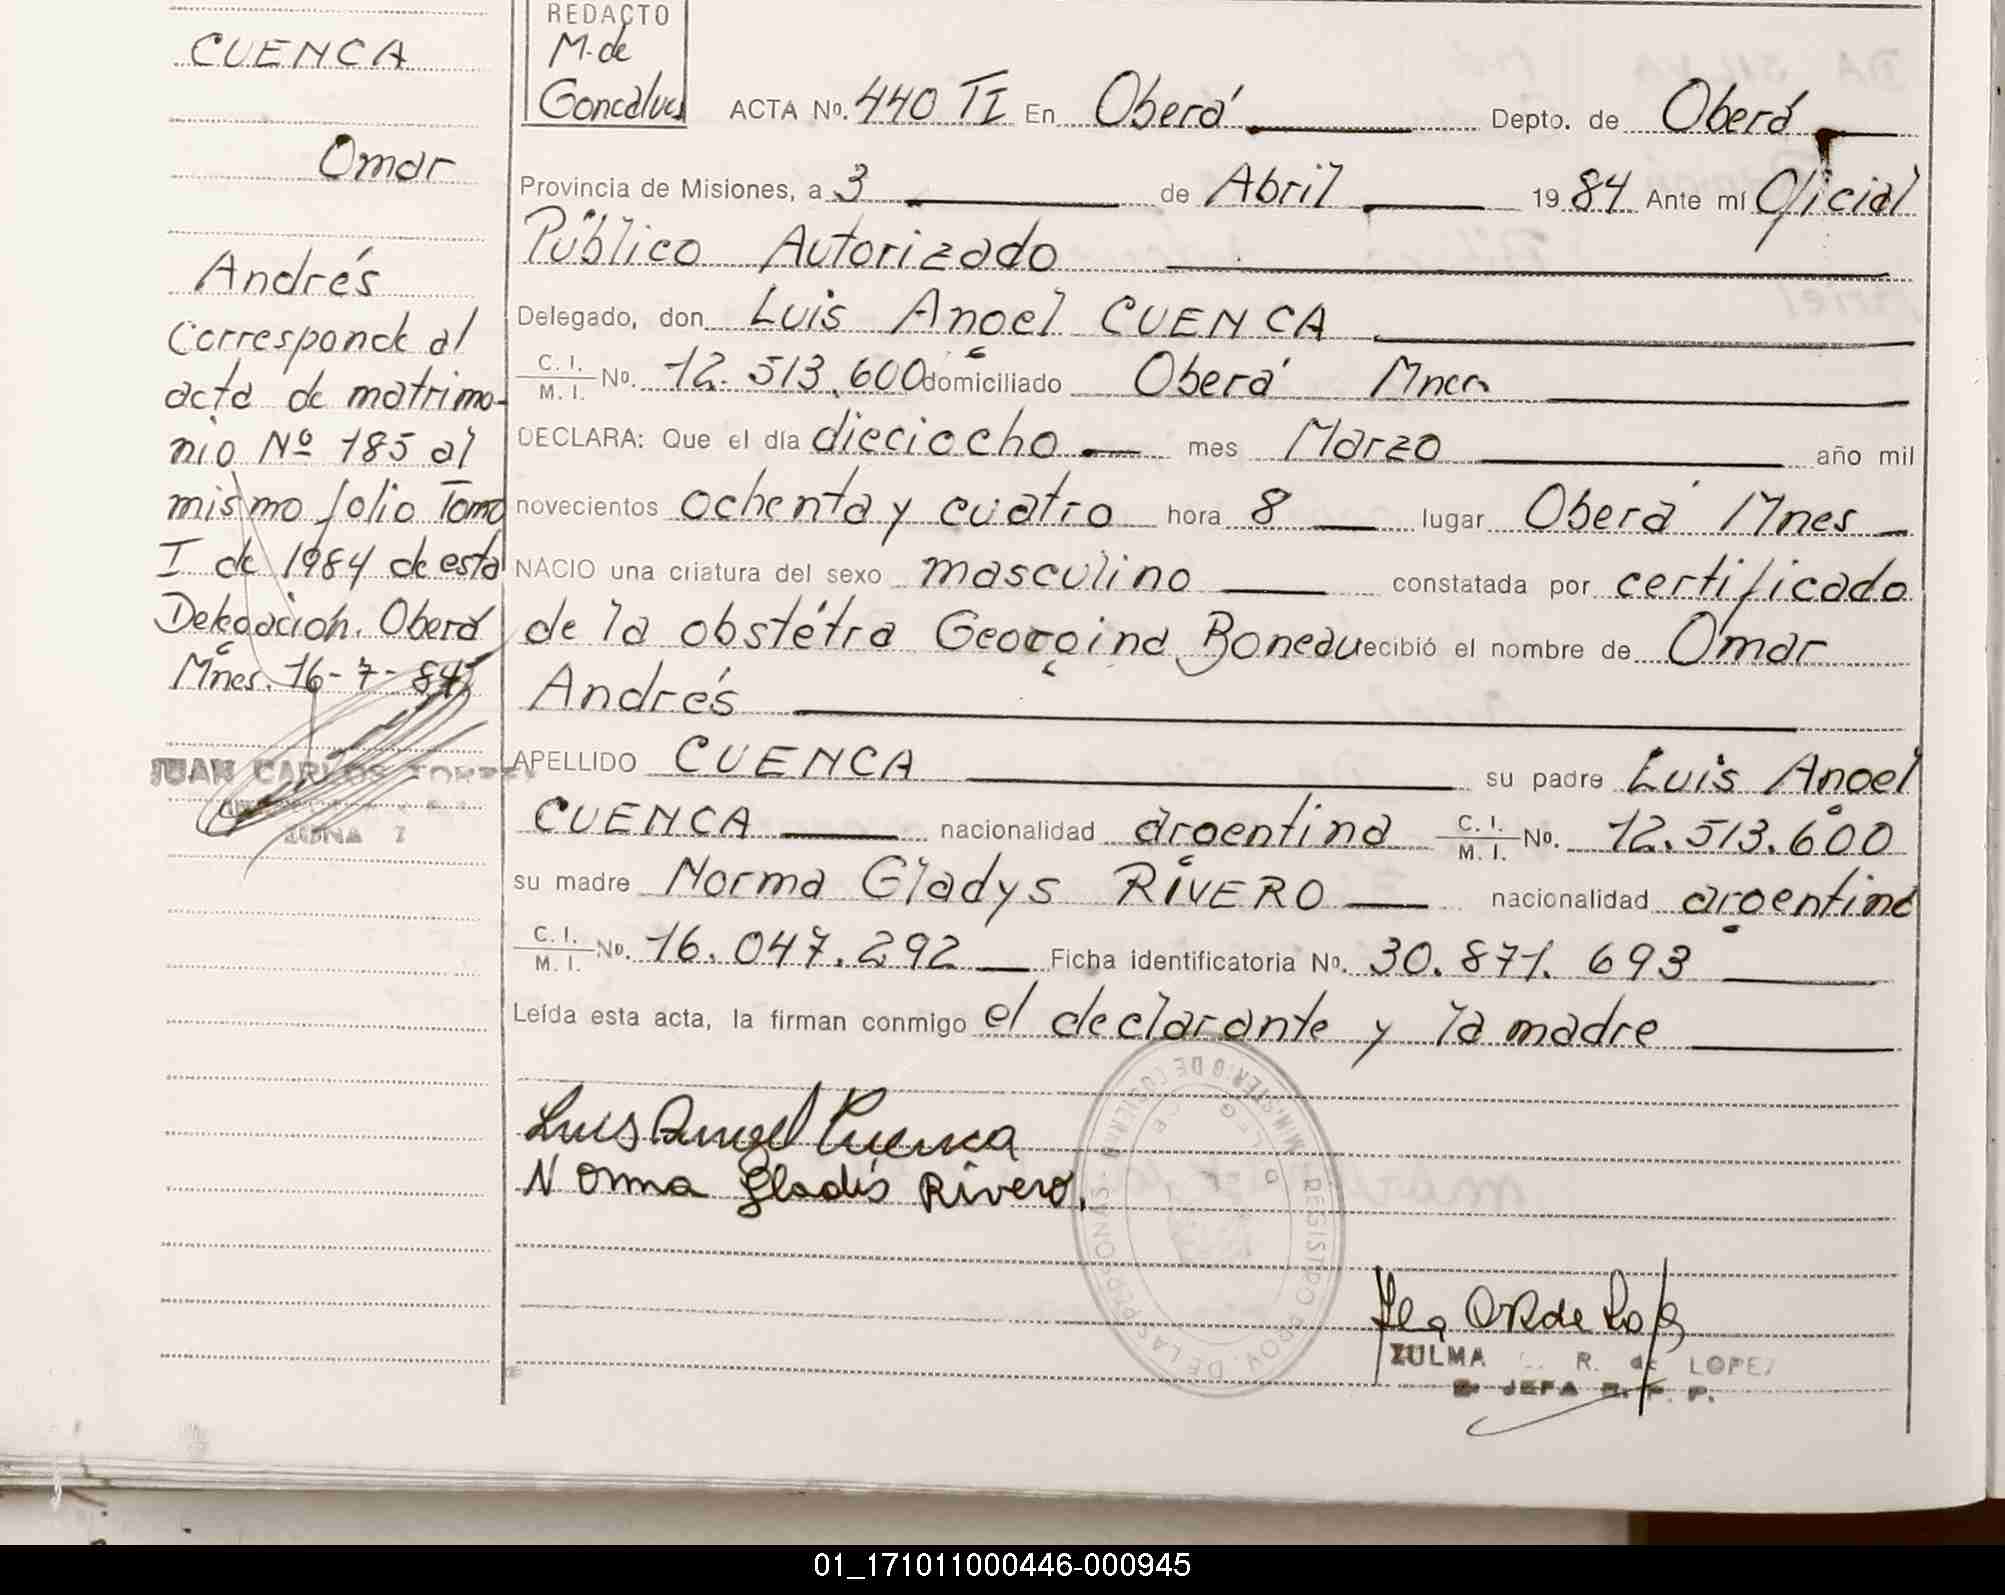 CUENCA
Omar
Andrés
Corresponde al
acta de matrimo-
nio Nº 185 al
mismo folio Tomo
I de 1984 de esta
Delegación. Oberá
Mnes. 16-7-84
JUAN CARLOS TORRES
ZONA 7
REDACTO
M. de
Goncalves
ACTA Nº. 440 TI En Oberá Depto. de Oberá
Provincia de Misiones, a 3 de Abril 1984 Ante mí Oficial
Público Autorizado
Delegado, don Luis Angel CUENCA
C. I. / M. I. Nº. 12.513.600 domiciliado Oberá Mnes
DECLARA: Que el día dieciocho mes Marzo año mil
novecientos ochenta y cuatro hora 8 lugar Oberá Mnes
NACIO una criatura del sexo masculino constatada por certificado
de la obstétra Georgina Boneau recibió el nombre de Omar
Andrés
APELLIDO CUENCA su padre Luis Angel
CUENCA nacionalidad argentina C. I. / M. I. Nº. 12.513.600
su madre Norma Gladys RIVERO nacionalidad argentina
C. I. / M. I. Nº. 16.047.292 Ficha identificatoria Nº. 30.871.693
Leída esta acta, la firman conmigo el declarante y la madre
Luis Angel Cuenca
Norma Gladis Rivero.
MINISTERIO DE GOBIERNO
REGISTRO PROV. DE LAS PERSONAS
ZULMA R. de LOPEZ
JEFA R. P. P.
01_171011000446-000945